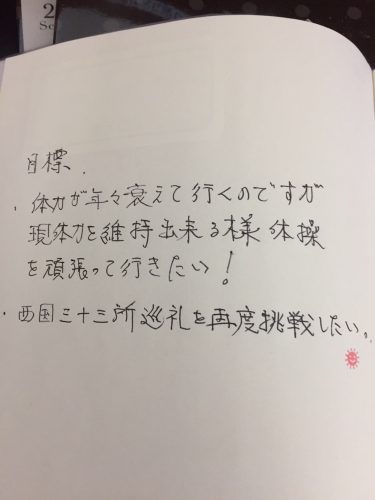 2
目標.
・体力が年々衰えて行くのですが
現体力を維持出来る様 体操
を頑張って行きたい!
・西国三十三所巡礼を再度挑戦したい。